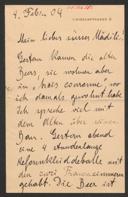 4. Febr. 04
Mein lieber süsser Mädili!
Gestern kamen die alten
Beers, sie wohnen aber
im „Trois couronne", wo
ich damals gewohnt habe
Ich spreche viel mit
dem Alten über einen
Bau. Gestern abend
eine 4 stundenlange
Reformbilddebatte mit
den zwei Frauenzimmern
gehabt. Die Beer ist